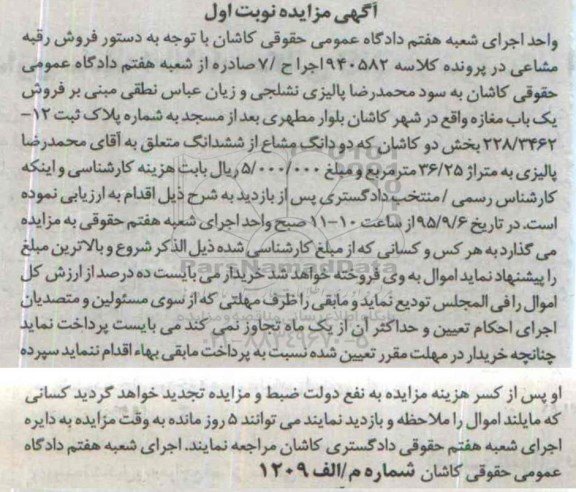 آگهی مزایده نوبت اول
واحد اجرای شعبه هفتم دادگاه عمومی حقوقی کاشان با توجه به دستور فروش رقبه
مشاعی در پرونده کلاسه ۹۴۰۵۸۲ اجرا ح /۷ صادره از شعبه هفتم دادگاه عمومی
حقوقی کاشان به سود محمدرضا پالیزی نشلجی و زیان عباس نطقی مبنی بر فروش
یک باب مغازه واقع در شهر کاشان بلوار مطهری بعد از مسجد به شماره پلاک ثبت ۱۲-
۲۲۸/۳۴۶۲ بخش دو کاشان که دو دانگ مشاع از ششدانگ متعلق به آقای محمدرضا
پالیزی به متراژ ۳۶/۲۵ مترمربع و مبلغ ۵/۰۰۰/۰۰۰ ریال بابت هزینه کارشناسی و اینکه
کارشناس رسمی / منتخب دادگستری پس از بازدید به شرح ذیل اقدام به ارزیابی نموده
است. در تاریخ ۹۵/۹/۶ از ساعت ۱۰-۱۱ صبح واحد اجرای شعبه هفتم حقوقی به مزایده
می گذارد به هر کس و کسانی که از مبلغ کارشناسی شده ذیل الذکر شروع و بالاترین مبلغ
را پیشنهاد نماید اموال به وی فروخته خواهد شد خریدار می بایست ده درصد از ارزش کل
اموال را فی المجلس تودیع نماید و مابقی را ظرف مهلتی که از سوی مسئولین و متصدیان
اجرای احکام تعیین و حداکثر آن از یک ماه تجاوز نمی کند می بایست پرداخت نماید
چنانچه خریدار در مهلت مقرر تعیین شده نسبت به پرداخت مابقی بهاء اقدام ننماید سپرده
او پس از کسر هزینه مزایده به نفع دولت ضبط و مزایده تجدید خواهد گردید کسانی
که مایلند اموال را ملاحظه و بازدید نمایند می توانند ۵ روز مانده به وقت مزایده به دایره
اجرای شعبه هفتم حقوقی دادگستری کاشان مراجعه نمایند. اجرای شعبه هفتم دادگاه
عمومی حقوقی کاشان شماره م/الف ۱۲۰۹
ParsNamadData
پایگاه اطلاع رسانی مناقصه و مزایده
۰۲۱-۸۸۳۴۹۶۷۰-۵